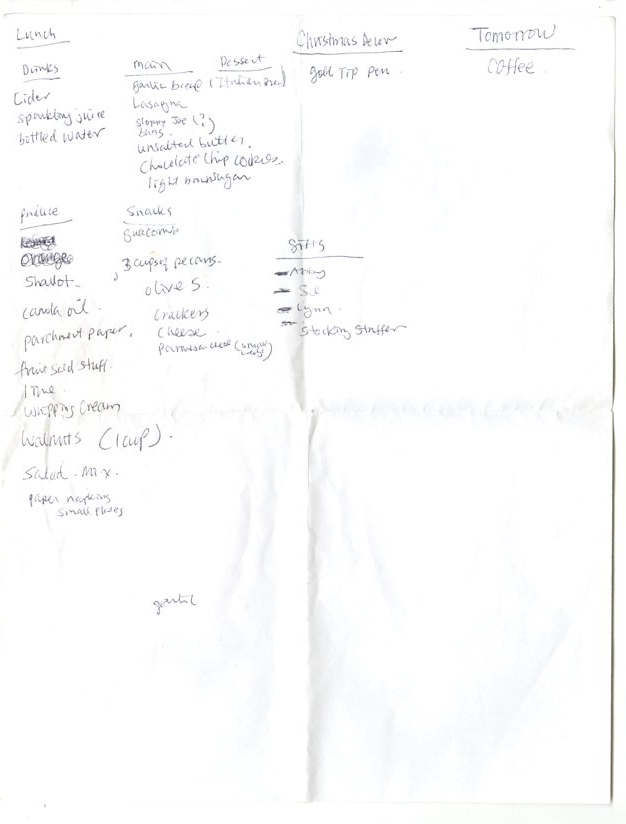 Lunch
Drinks
Cider
sparkling juice
bottled water
main
Dessert
garlic bread (Italian
Lasagna
Sloppy Joe (?)
buns.
unsalted butter.
Chocolate Chip cookies.
light brown sugar
Christmas Decor
gold Tip Pen.
Tomorrow
Coffee.
produce
Orange
Shallot.
canola oil.
parchment paper.
fruit salad stuff.
1 lime.
whipping Cream
Walnuts (1 cup).
Salad. mix.
paper napkins
small plates
Snacks
3 cups of pecans.
olives.
Crackers
Cheese.
Lynn.
Stocking Stuffer